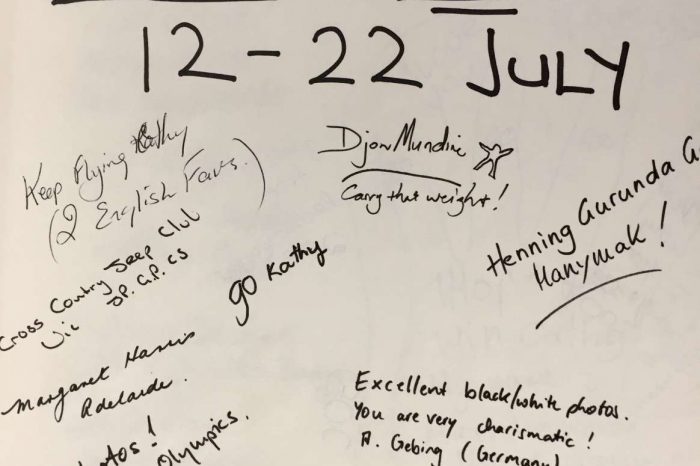 12 - 22 JULY
Keep Flying Kathy
(2 English Favs.)
Djon Mundine
Carry that weight!
Henning Gurunda G
Manymak!
Cross Country Jeep Club
Vic JP. G.P. CS
go Kathy
Margaret Harris
Adelaide.
otos!
Olympics.
Excellent black/white photos.
You are very charismatic!
A. Gebing (Germany)